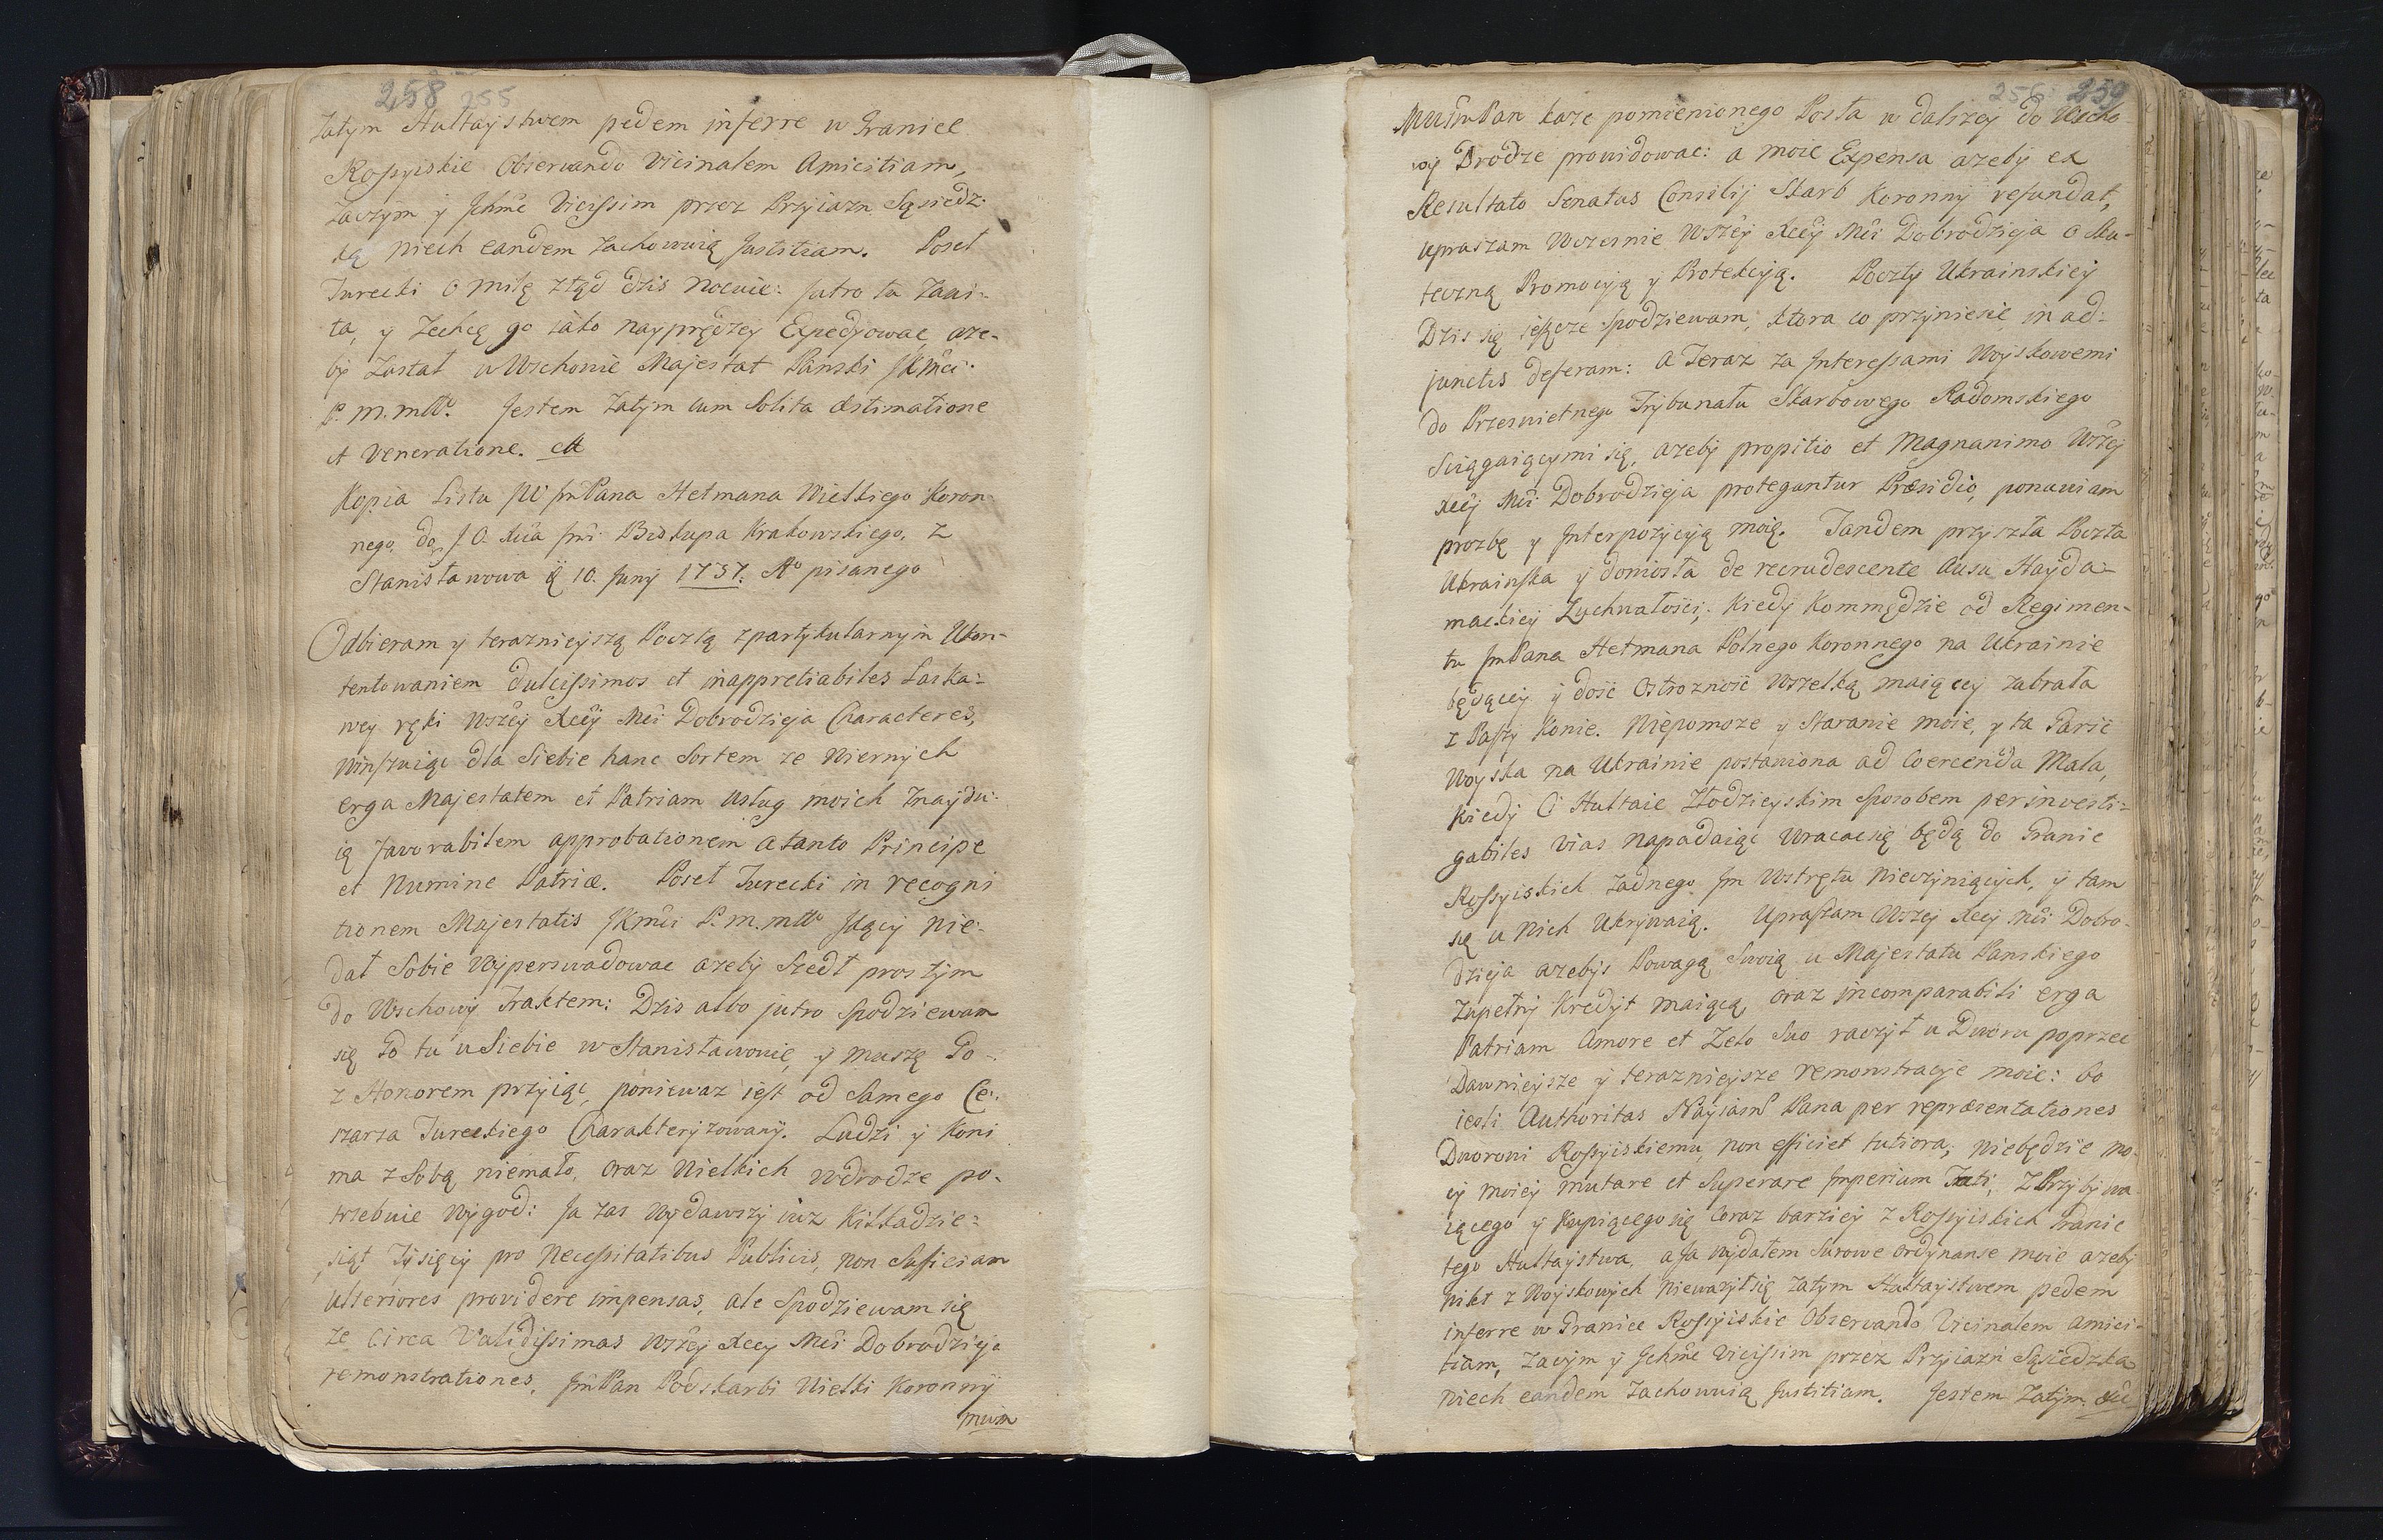 258 255
zatym Hultaystwem pedem inferre w Granice
Rossyiskie Observando Vicinalem Amicitiam,
zaczym y Ichmc Vicissim przez Przyiazn Sąsiedz-
ką niech eandem zachowuią Justitiam. Poseł
Turecki o milę ztąd dzis nocuie: Jutro tu zawi-
ta, y zechcę go iako nayprędzey Expedyowac, aze-
by zastał w Wschowie Majestat Panski JKmci
P. m. młł. Jestem zatym cum Solita Æstimatione
et Veneratione. ett
Kopia Listu JW JmPana Hetmana Wielkiego Koron-
nego do J. O. Xcia Jmci Biskupa Krakowskiego. z
Stanisławowa d 10. Juny 1737. Ao pisanego
Odbieram y teraznieyszą Pocztą z partykularnym Ukon-
tentowaniem dulcissimos et inappretiabiles Laska-
wey ręki Wszey Xcey Mci Dobrodzieja Characteres,
winszuiąc dla Siebie hanc Sortem ze Wiernych
erga Majestatem et Patriam usług moich znaydu-
ią favorabilem approbationem a tanto Principe
et Numine Patriæ. Poseł Turecki in recogni
tionem Majestatis JKmci P. m. młło Jdący nie-
dał Sobie Wyperswadowac azeby Szedł prostym
do Wschowy Traktem: Dzis albo jutro Spodziewam
się Go tu u Siebie w Stanisławowie, y muszę Go
z Honorem przyiąc, poniewaz iest od Samego Ce-
sarza Tureckiego Charakteryzowany. Ludzi y Koni
ma z Sobą niemało, oraz Wielkich w drodze po-
trzebuie Wygod: Ja zas Wydawszy iuz Kilkadzie-
siąt Tysięcy pro Necessitatibus Publicis, non Sufficiam
ulteriores providere impensas, ale Spodziewam się
ze Circa Validissimas Wszey Xcey Mci Dobrodzieja
remonstrationes, JmPan Podskarbi Wielki Koronny
mum
256 259
MumPan kaze pomienionego Posła w dalszey do Wscho-
wy Drodze prowidowac: a moie Expensa azeby ex
Resultato Senatus Consilij Skarb Koronny refundat,
upraszam Wczesnie Wszey Xcey Mci Dobrodzieja o Sku-
teczną Promocyją y Protekcyją. Poczty Ukrainskiey
Dzis się ieszcze Spodziewam, ktora co przyniesie in ad-
junctis deferam: a Teraz za Interessami Woyskowemi
do Przeswietnego Trybunału Skarbowego Radomskiego
Sciągaiącymi się, azeby propitio et Magnanimo Wszey
Xcey Mci Dobrodzieja protegantur Præsidio, ponawiam
prozbę y Interpozycyją moią. Tandem przyszła Poczta
Ukrainska y doniosła de recrudescente Ausu Hayda-
mackiey Zuchwałosci, kiedy Kommędzie od Regimen-
tu JmPana Hetmana Polnego Koronnego na Ukrainie
będącey y dosc Ostroznosc Wszelką maiącey zabrała
z Paszy Konie. Niepomoze y Staranie moie, y ta Garsc
Woyska na Ukrainie postawiona ad Coercenda Mala,
kiedy Ci Hultaie Złodzieyskim Sposobem per investi-
gabiles vias napadaiąc Wracac się będą do Granic
Rossyiskich zadnego Jm Wstrętu nieczyniących, y tam
się u Nich Ukrywaią. Upraszam Wszey Xcey Mci Dobro-
dzieja azebys Powagą Swoią u Majestatu Panskiego
zupełny Kredyt maiącą, oraz incomparabili erga
Patriam Amore et Zelo Suo raczył u Dworu poprzec
Dawnieysze y teraznieysze remonstracye moie: bo
iesli Authoritas Nayiasno Pana per repræsentationes
Dworowi Rossyiskiemu, non efficiet tutiora, niebędzie mo-
cy moiey mutare et Superare Imperium Fati, z Przybywa-
iącego y Kupiącego się Coraz barziey z Rossyiskich Granic
tego Hultaystwa, a Ja wydałem Surowe ordynanse moie azeby
nikt z Woyskowych niewazył się zatym Hultaystwem pedem
inferre w Granice Rossyiskie Observando Vicinalem Amici-
tiam, zaczym y Ichmc Vicissim przez Przyiazn Sąsiedzką
niech eandem zachowuią Justitiam. Jestem zatym